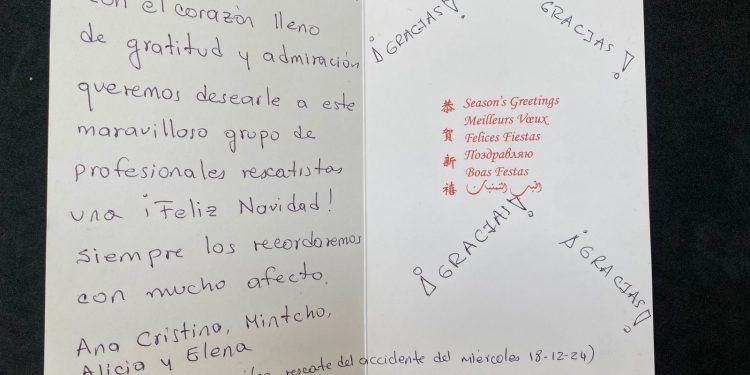 con el corazón lleno
de gratitud y admiración
queremos desearle a este
maravilloso grupo de
profesionales rescatistas
una ¡Feliz Navidad!
Siempre los recordaremos
con mucho afecto.
Ana Cristina, Mintcho,
Alicia y Elena
rescate del accidente del miércoles 18-12-24)
¡GRACIAS!
¡GRACIAS!
恭賀新禧
Season's Greetings
Meilleurs Vœux
Felices Fiestas
Поздравляю
Boas Festas
¡GRACIAS!
¡GRACIAS!